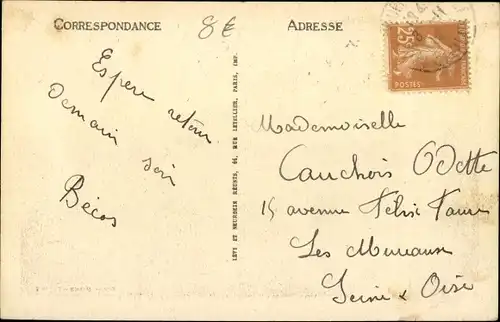 CORRESPONDANCE
8€
ADRESSE
25c
POSTES
Espere retour
demain soir
Bécos
LÉVY ET NEURDEIN RÉUNIS, 44, RUE LETELLIER, PARIS, IMP.
Mademoiselle
Cauchois Odette
15 avenue Félix Faure
Les Mureaux
Seine & Oise